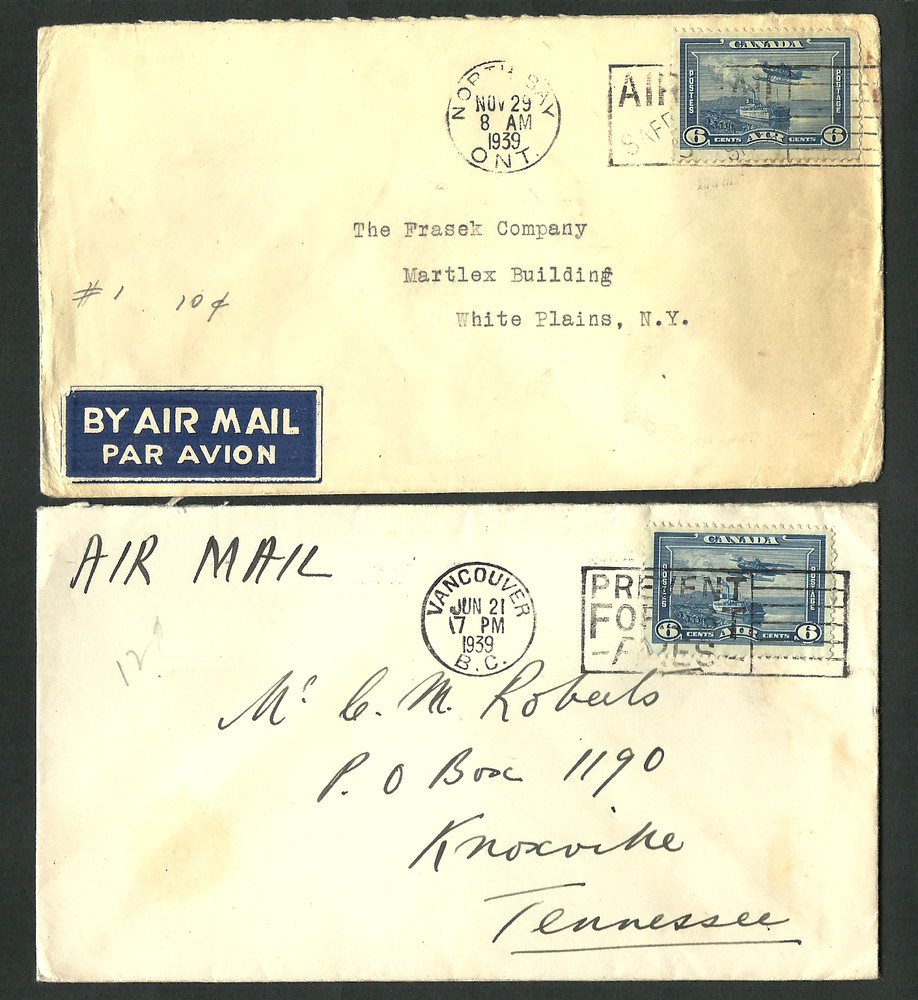 NORTH BAY
NOV 29
8 AM
1939
ONT.
AIR MAIL
SAFE
CANADA
POSTES
POSTAGE
6 CENTS AIR CENTS 6
The Frasek Company
Martlex Building
White Plains, N.Y.
#1 10¢
BY AIR MAIL
PAR AVION
AIR MAIL
VANCOUVER
JUN 21
17 PM
1939
B.C.
PREVENT
FOREST
-FIRES-
CANADA
POSTES
POSTAGE
6 CENTS AIR CENTS 6
Mr C. M. Roberts
P. O Box 1190
Knoxville
Tennessee